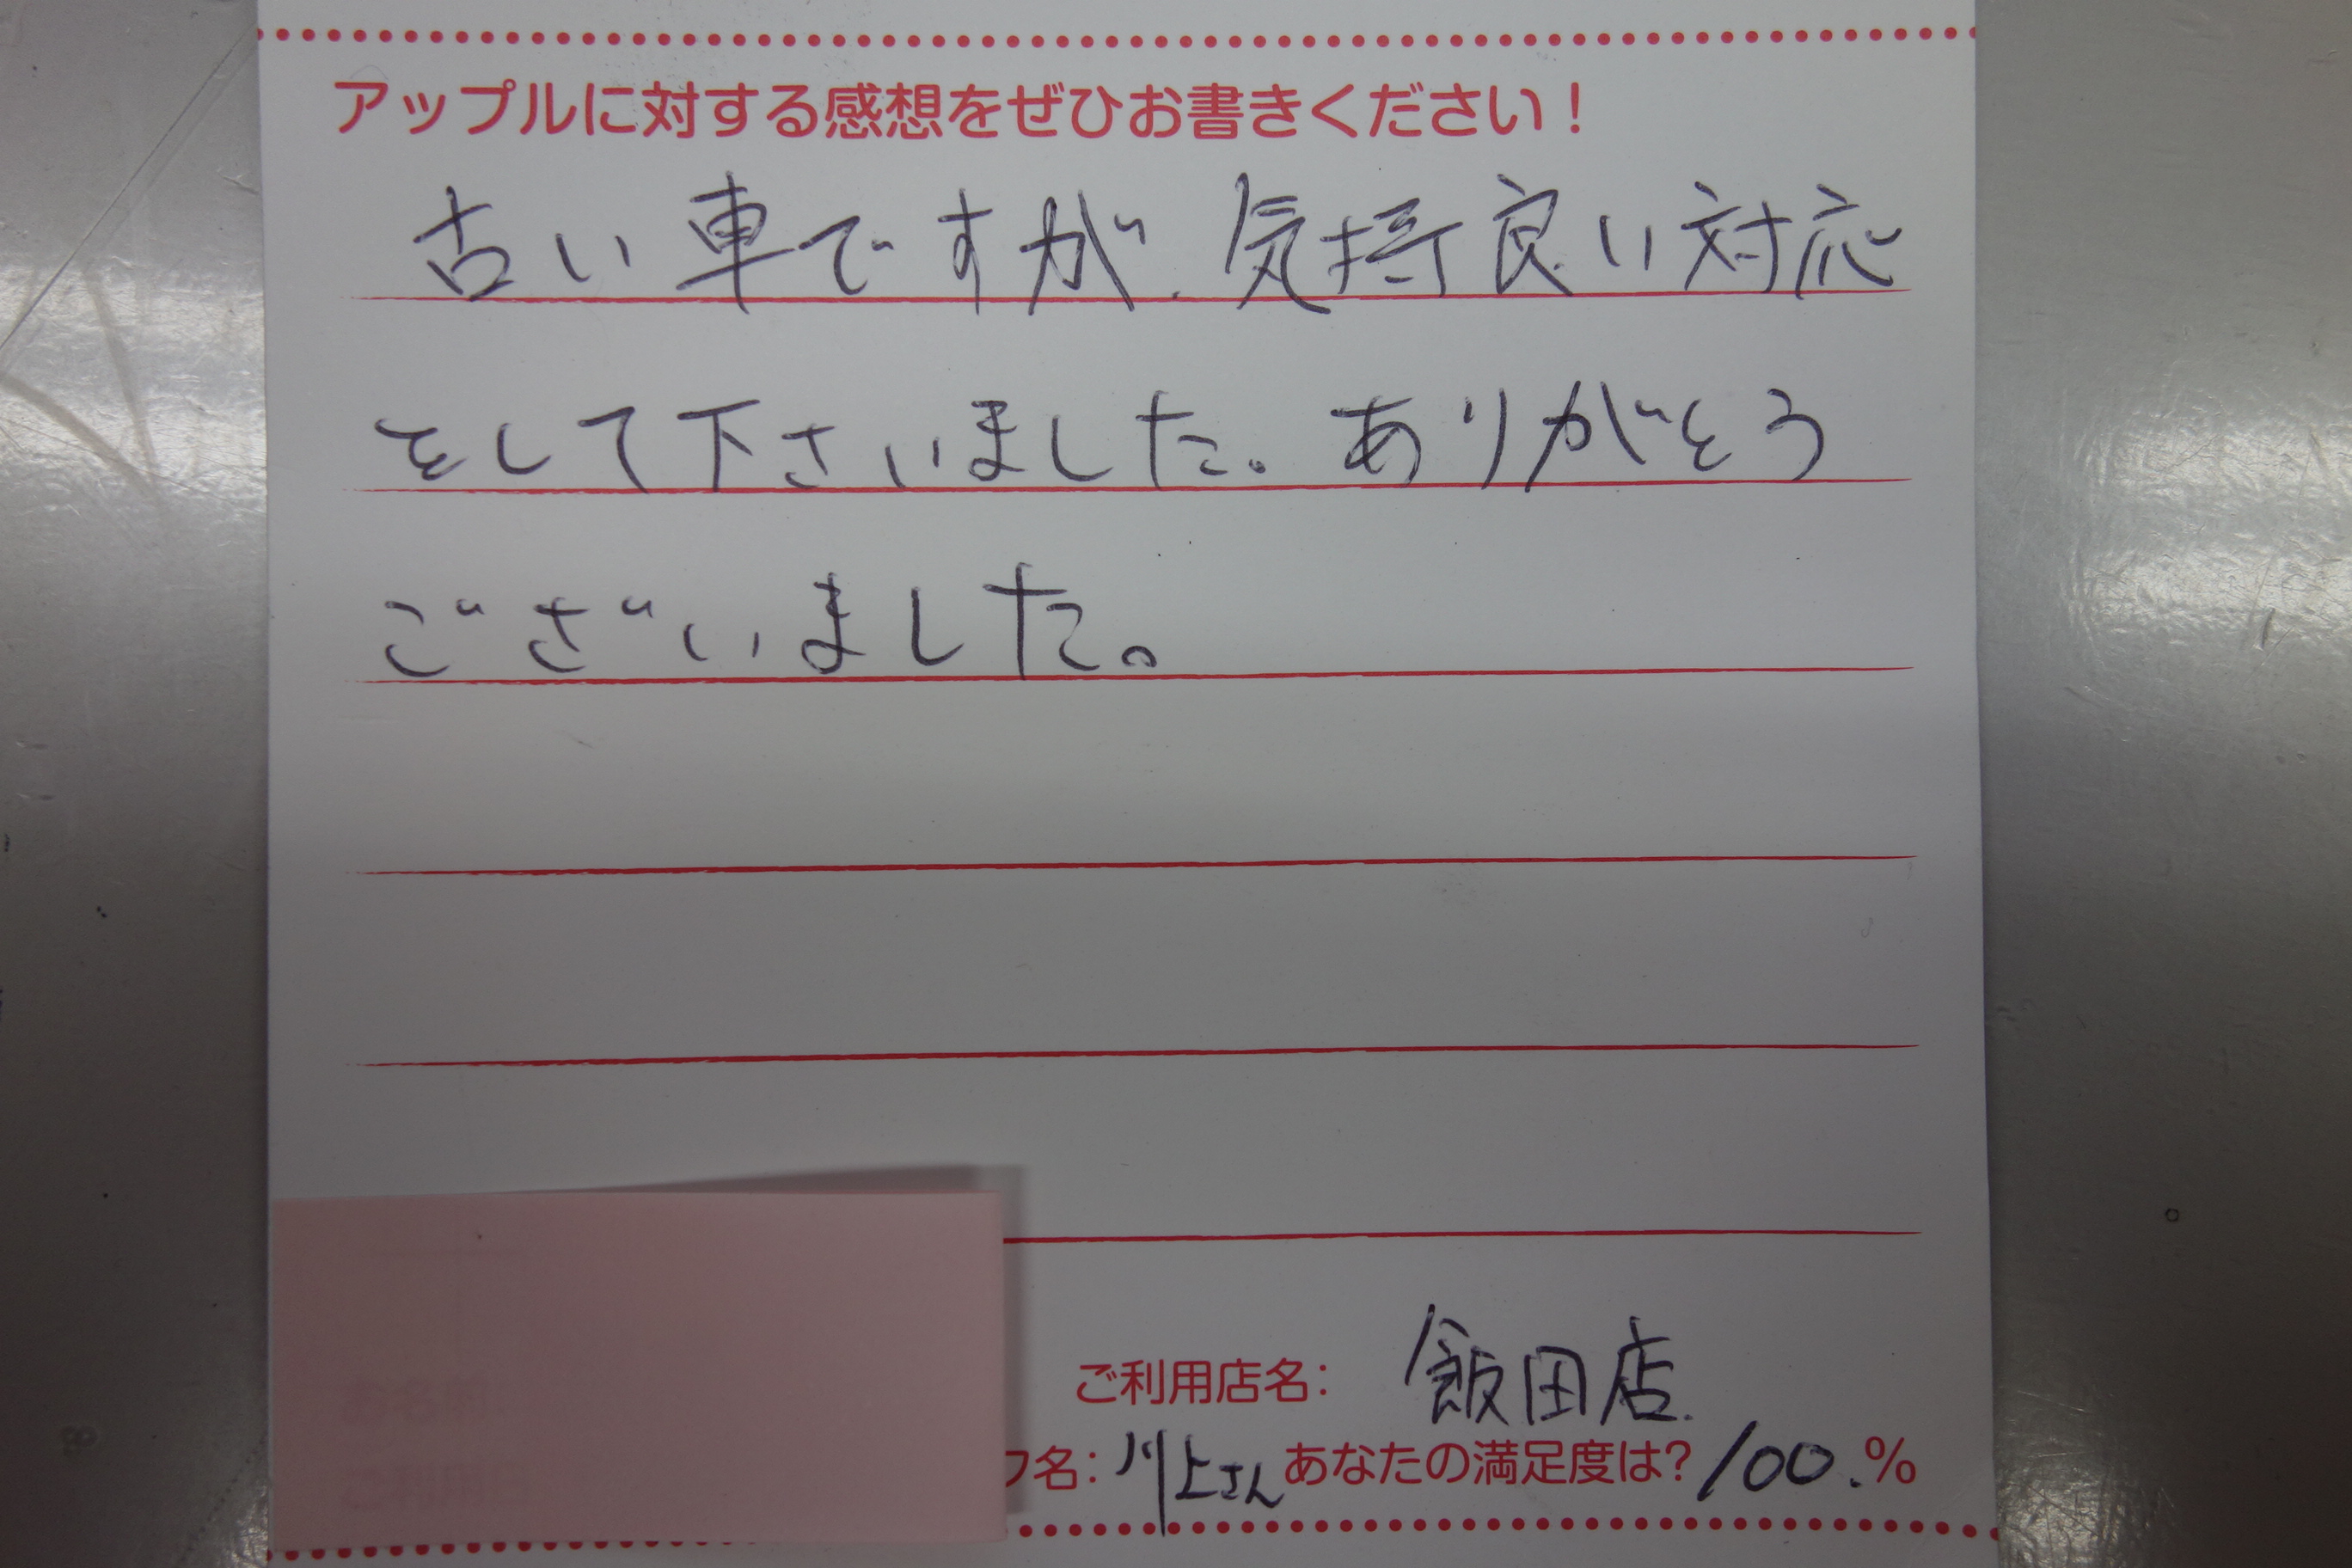 アップルに対する感想をぜひお書きください!
古い車ですが、気持良い対応
をして下さいました。ありがとう
ございました。
ご利用店名: 飯田店.
フ名: 川上さん あなたの満足度は? 100.%